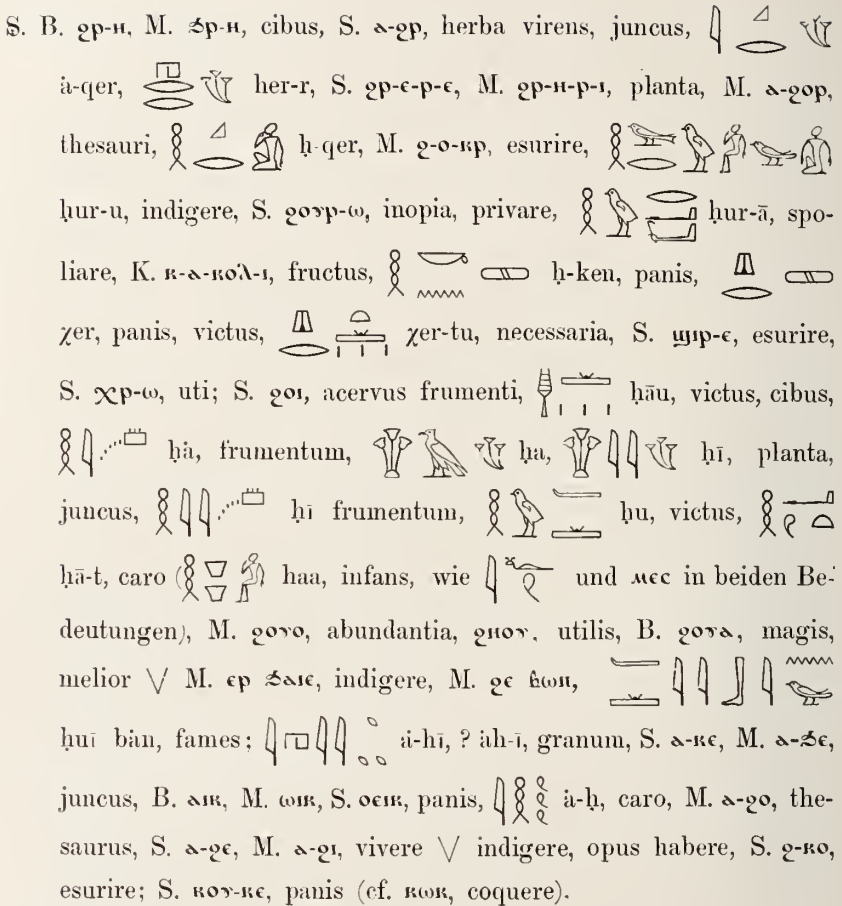 S. B. ϩⲣ-ⲏ, M. ϧⲣ-ⲏ, cibus, S. ⲁ-ϩⲣ, herba virens, juncus,
ȧ-qer, her-r, S. ϩⲣ-ⲉ-ⲣ-ⲉ, M. ϩⲣ-ⲏ-ⲣ-ⲓ, planta, M. ⲁ-ϩⲟⲣ,
thesauri, ḥ-qer, M. ϩ-ⲟ-ⲕⲣ, esurire,
ḥur-u, indigere, S. ϩⲟⲩⲣ-ⲱ, inopia, privare, ḥur-ā, spo-
liare, K. ⲕ-ⲁ-ⲕⲟⲗ-ⲓ, fructus, ḥ-ken, panis,
χer, panis, victus, χer-tu, necessaria, S. ϣⲓⲣ-ⲉ, esurire,
S. ⲭⲣ-ⲱ, uti; S. ϩⲟⲓ, acervus frumenti, ḥāu, victus, cibus,
ḥȧ, frumentum, ḥa, ḥī, planta,
juncus, ḥī frumentum, ḥu, victus,
ḥā-t, caro ( haa, infans, wie und ⲙⲉⲥ in beiden Be-
deutungen), M. ϩⲟⲩⲟ, abundantia, ϩⲏⲟⲩ, utilis, B. ϩⲟⲩⲁ, magis,
melior \/ M. ⲉⲣ ϧⲁⲓⲉ, indigere, M. ϩⲉ ⲃⲱⲛ,
ḥuī bȧn, fames; ȧ-hī, ? ȧh-ī, granum, S. ⲁ-ⲕⲉ, M. ⲁ-ϧⲉ,
juncus, B. ⲁⲓⲕ, M. ⲱⲓⲕ, S. ⲟⲉⲓⲕ, panis, ȧ-ḥ, caro, M. ⲁ-ϩⲟ, the-
saurus, S. ⲁ-ϩⲉ, M. ⲁ-ϩⲓ, vivere \/ indigere, opus habere, S. ϩ-ⲕⲟ,
esurire; S. ⲕⲟⲩ-ⲕⲉ, panis (cf. ⲕⲱⲕ, coquere).